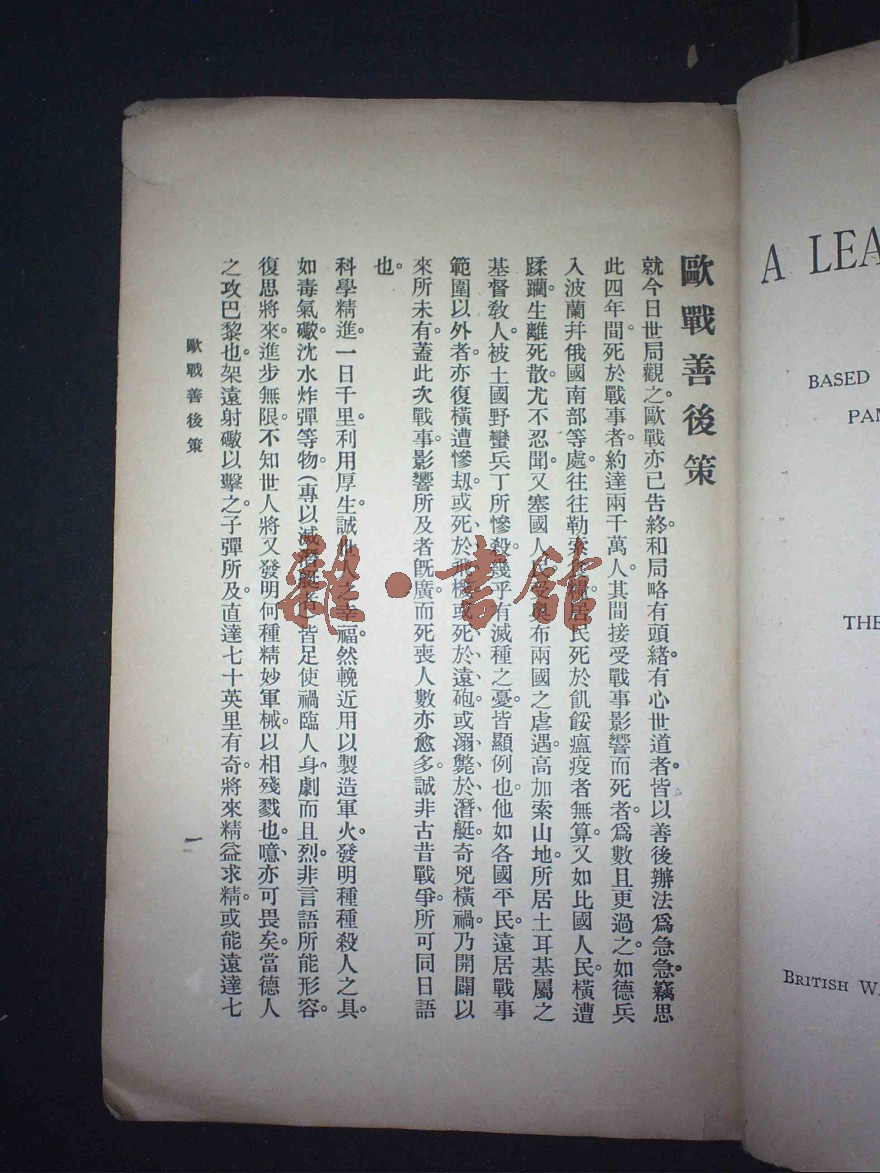 歐戰善後策
就今日世局觀之。歐戰亦已告終。和局略有頭緒。有心世道者。皆以善後辦法爲急急。竊思
此四年間。死於戰事者。約達兩千萬人。其間接受戰事影響而死者。爲數且更過之。如德兵
入波蘭幷俄國南部等處。往往勒索居民。死於飢餒瘟疫者無算。又如比國人民。橫遭
蹂躪。生離死散。尤不忍聞。又塞國人受奥布兩國之虐遇。高加索山地。所居土耳基屬之
基督敎人。被土國野蠻兵丁所慘殺。幾乎有滅種之憂。皆顯例也。他如各國平民。遠居戰事
範圍以外者。亦復橫遭慘刼。或死於飛機、或死於遠砲、或溺斃於潛艇、奇兇橫禍。乃開闢以
來所未有。蓋此次戰事。影響所及者旣廣。而死喪人數亦愈多。誠非古昔戰爭。所可同日語
也。
科學精進。一日千里。利用厚生。誠人之幸福。然輓近用以製造軍火。發明種種殺人之具。
如毒氣礮沈水炸彈等物。(專以滅潛艇者)皆足使禍臨人身。劇而且烈。非言語所能形容。
復思將來進步無限。不知世人將又發明何種精妙軍械。以相殘戮也。噫、亦可畏矣。當德人
之攻巴黎也。架遠射礮以擊之。子彈所及。直達七十英里有奇。將來精益求精。或能遠達七
歐戰善後策
一
龍·書舘
A LEA
BASED
PAM
THE
BRITISH WA